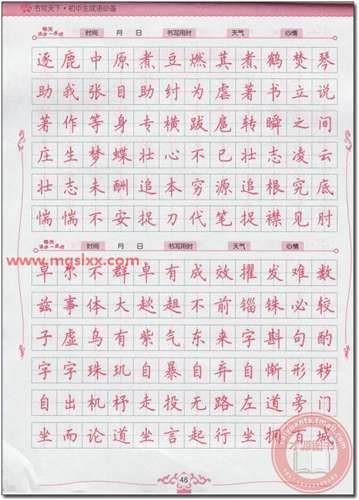 书写天下·初中生成语必备
每天 进步一点点 时间 月 日 书写用时 天气 心情
逐鹿中原煮豆燃萁煮鹤焚琴
助我张目助纣为虐著书立说
著作等身专横跋扈转瞬之间
庄生梦蝶壮心不已壮志凌云
壮志未酬追本穷源追根究底
惴惴不安捉刀代笔捉襟见肘
每天 进步一点点 时间 月 日 书写用时 天气 心情
www.mgslxx.com
卓尔不群卓有成效擢发难数
兹事体大趑趄不前锱铢必较
子虚乌有紫气东来字斟句酌
字字珠玑自暴自弃自惭形秽
自出机杼走投无路左道旁门
坐而论道坐言起行坐拥百城
46